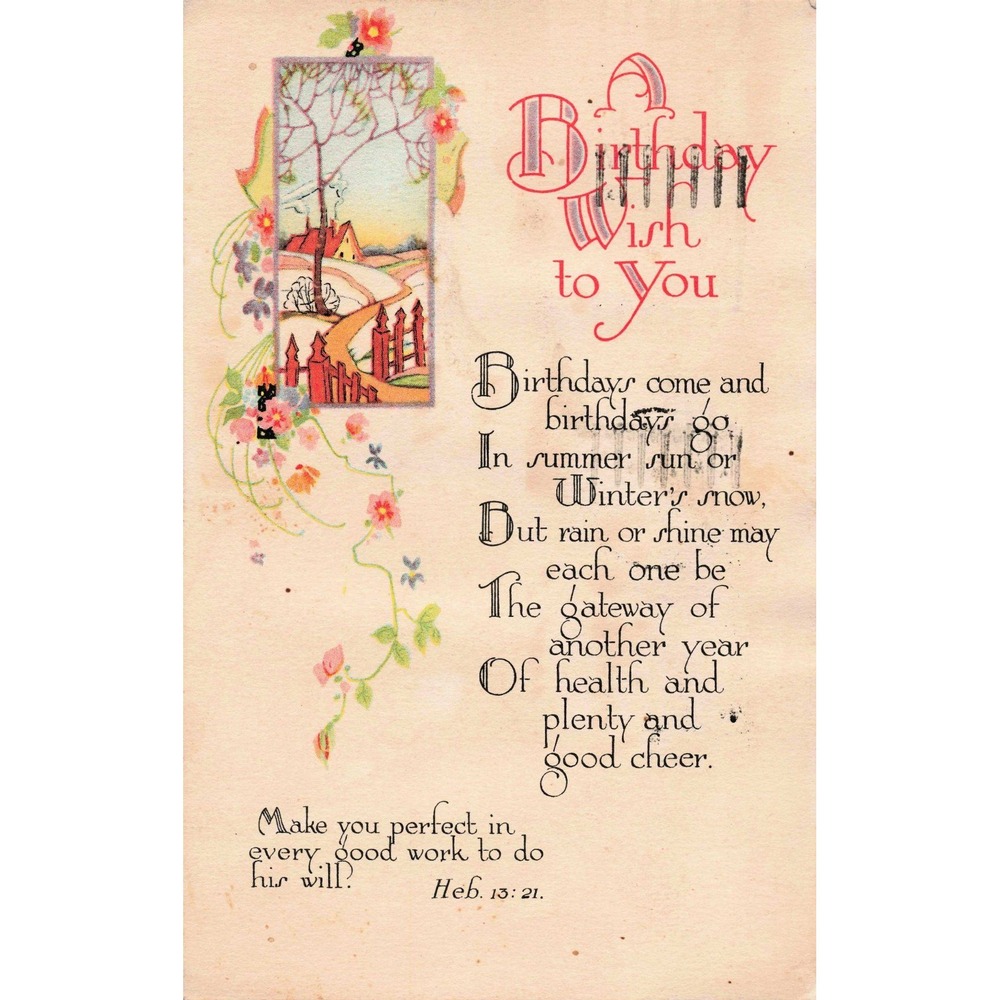 A
Birthday
Wish
to You
Birthdays come and
birthdays go
In summer sun or
Winter's snow,
But rain or shine may
each one be
The gateway of
another year
Of health and
plenty and
good cheer.
Make you perfect in
every good work to do
his will.
Heb. 13:21.